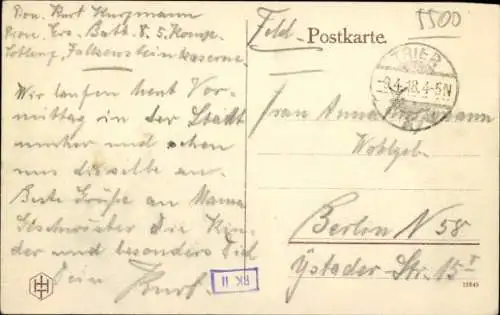 Pion. Kurt Kurzmann
Pion. Ers. Batl. 8. 5. Komp.
Coblenz, Falkensteinkaserne.
Wir laufen heut Vor-
mittag in der Stadt
umher und sehen
uns dieselbe an.
Beste Grüße an Mama
Geschwister die Kin-
der und besonders Dich
Dein Kurt.
RK II
5500
Feld - Postkarte.
TRIER
-9.4.18.4-5N
Frau Anna
Wohlgeb.
Berlin N 58
Ystader-Str. 15 I